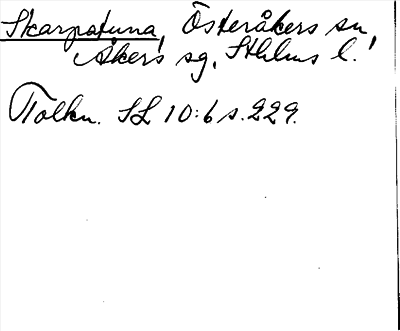 Skarpatuna, Österåkers sn,
Åkers sg, Sthlms l.
Tolkn. SL 10:6 s. 229.